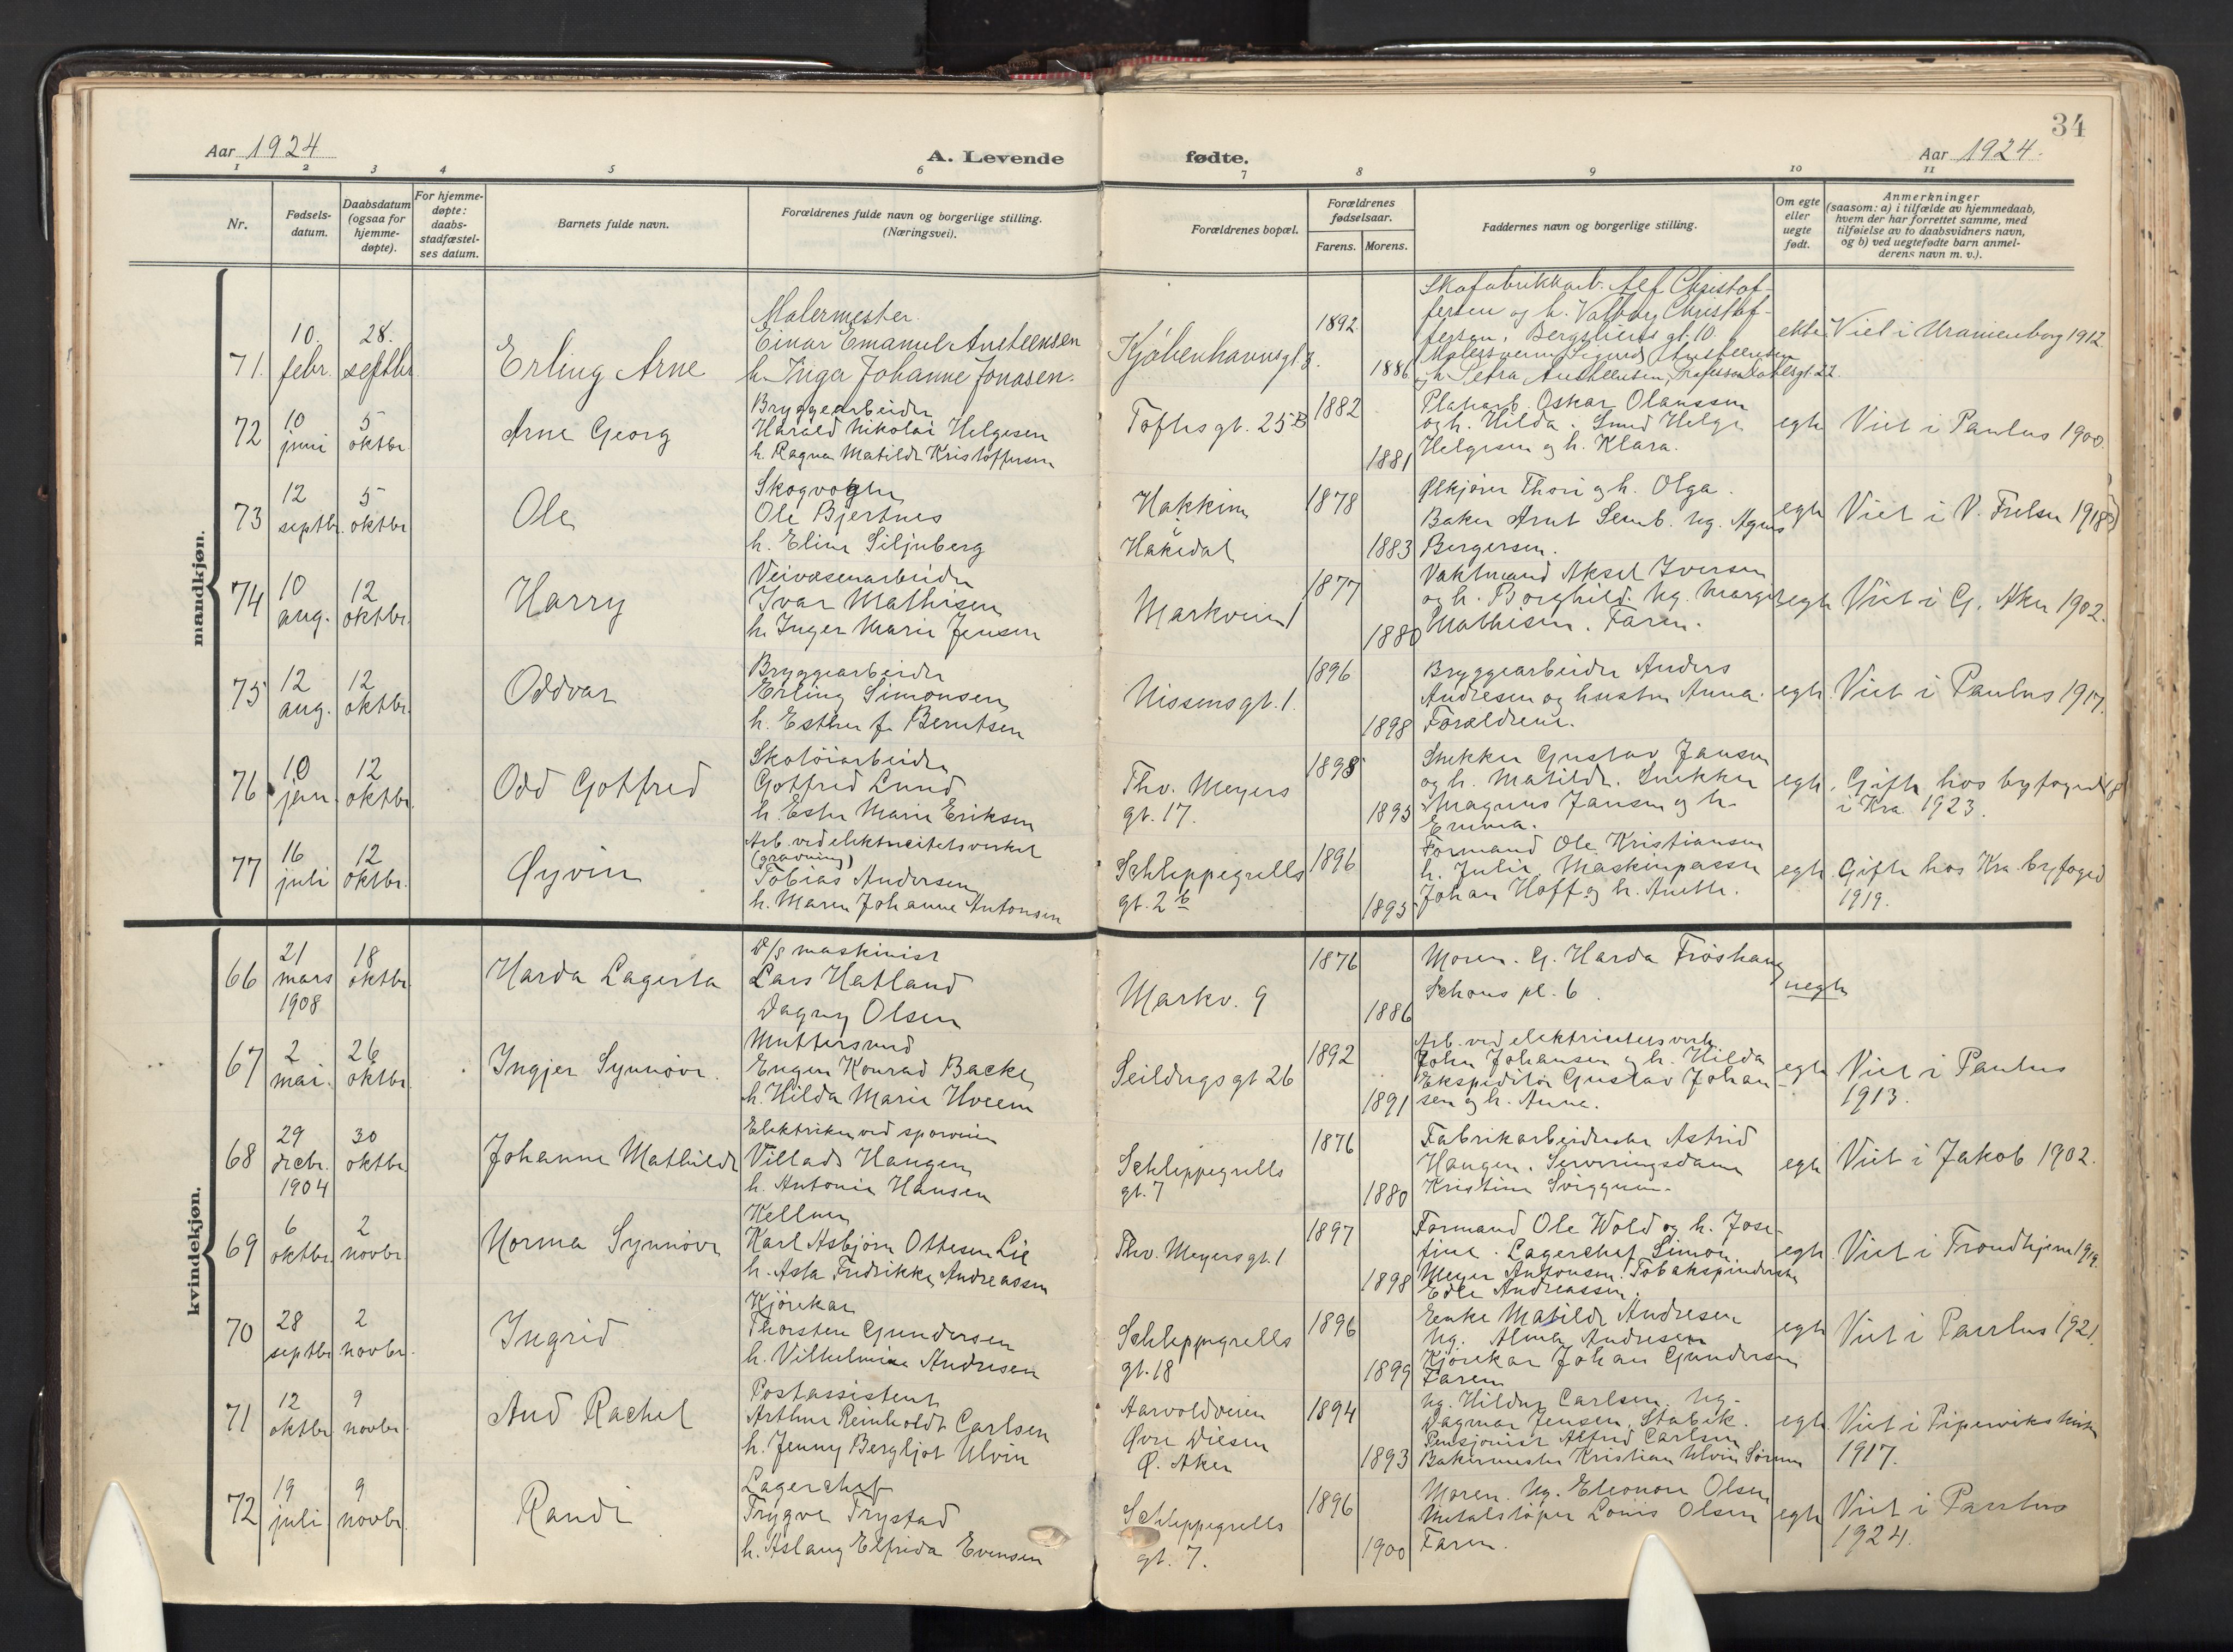 34
Aar 1924
A. Levende
fødte.
Aar 1924.
1 2 3 4 5 6 7 8 9 10 11
Nr.
Fødsels-
datum.
Daabsdatum
(ogsaa for
hjemme-
døpte).
For hjemme-
døpte:
daabs-
stadfæstel-
ses datum.
Barnets fulde navn.
Forældrenes fulde navn og borgerlige stilling.
(Næringsvei).
Forældrenes bopæl.
Forældrenes
fødselsaar.
Farens. Morens.
Faddernes navn og borgerlige stilling.
Om egte
eller
uegte
født.
Anmerkninger
(saasom: a) i tilfælde av hjemmedaab,
hvem der har forrettet samme, med
tilføielse av to daabsvidners navn,
og b) ved uegtefødte barn anmel-
derens navn m. v.).
mandkjøn.
71.
10.
febr.
28.
septbr
Erling Arne
Malermester
Einar Emanuel Austeensen
h. Inga Johanne Jonasen.
Kjøbenhavnsgt. 3.
1892
1886
Skofabrikkarb. Alf Christof-
fersen og h. Valborg Christof-
fersen, Bergsliens gt. 10.
Malersvenn Sigurd Austeensen
og h. Petra Austeensen, Professor Dahlsgt. 22.
ekte
Viet i Uranienborg 1912.
72
10
juni
5
oktbr
Arne Georg
Bryggearbeider
Harald Nikolai Helgesen
h. Ragna Matilde Kristoffersen
Toftesgt. 25B
1882
1881
Platearb. Oskar Olaussen
og h. Hilda. Smed Helge
Helgesen og h. Klara.
egte
Viet i Paulus 1900.
73
12
septbr.
5
oktbr
Ole
Skogvogter
Ole Bjertnes
h. Eline Siljuberg
Hakkim
i
Hakedal
1878
1883
Ølkjører Thori og h. Olga.
Baker Arnt Lemb. Ug. Agnes
Bergersen.
egte
Viet i V. Frelser 1918
74
10
aug.
12
oktbr.
Harry
Veivæsenarbeider
Ivar Mathisen
h. Inger Marie Jensen
Markveien 1
1877
1880
Vaktmand Aksel Iversen
og h. Borghild. Ug. Margit
Mathisen. Faren.
egte
Viet i G. Aker 1902.
75
12
aug.
12
oktbr.
Oddvar
Bryggearbeider
Erling Simonsen
h. Esther f. Berntsen
Nissens gt. 1.
1896
1898
Bryggearbeider Anders
Andresen og hustru Anna.
Forældrene.
egte
Viet i Paulus 1917.
76
10
jan.
12
oktbr.
Odd Gotfred
Skotøiarbeider
Gotfred Lund
h. Ester Marie Eriksen
Thv. Meyers
gt. 17.
1898
1895
Snekker Gustav Jansen
og h. Matilde. Snekker
Magnus Jansen og h.
Emma.
egte
Gifte hos byfogden
i Kra. 1923.
77
16
juli
12
oktbr.
Øyvin
Arb. ved elektricitetsverket
(gravning)
Tobias Andersen
h. Maren Johanne Antonsen
Schleppegrells
gt. 2 b
1896
1895
Formand Ole Kristiansen
h. Julie, Maskinpasser
Johan Hoff og h. Anette.
egte
Gifte hos Kra. byfoged
1919.
kvindekjøn.
66
21
mars
1908
18
oktbr
Harda Lagerta
D/s maskinist
Lars Hatland
Dagny Olsen
Markv. 9
1876
1886
Moren. G. Harda Frøshaug
Schous pl. 6
uegte
67
2
mai.
26
oktbr
Ingjer Synnøve.
Muttersmed
Eugen Konrad Backe
h. Hilda Marie Hveem
Seildugsgt 26
1892
1891
Arb. ved elektricitetsverk
John Johansen og h. Hilda
Ekspeditør Gustav Johan-
sen og h. Anne.
egte
Viet i Paulus
1913.
68
29
decbr.
1904
30
oktbr
Johanne Mathilde
Elektriker ved sporveien
Villads Haugen
h. Antonie Hansen
Schleppegrells
gt. 7
1876
1880
Fabrikarbeiderske Astrid
Haugen. Serveringsdame
Kristine Sviggum.
egte
Viet i Jakob 1902.
69
6
oktbr
2
novbr
Norma Synnøve
Kellner
Karl Asbjørn Ottesen Lie
h. Asta Fredrikke Andreassen
Thv. Meyersgt. 1
1897
1898
Formand Ole Wold og h. Jose-
fine. Lagerchef Simon
Meyer Antonsen. Tobakspinderske
Edle Andreassen.
egte
Viet i Trondhjem 1919.
70
28
septbr
2
novbr.
Ingrid
Kjørekar
Thorsten Gundersen
h. Vilhelmine Andresen
Schleppegrells
gt. 18
1896
1899
Enke Matilde Andresen
Ug. Alma Andresen
Kjørekar Johan Gundersen
Faren
egte
Viet i Paulus 1921.
71
12
oktbr
9
novbr.
Aud Rachel
Postassistent
Arthur Reinholdt Carlsen
h. Jenny Bergljot Ulvin
Aarvoldveien
Øvre Disen
Ø. Aker
1894
1893
Ug. Hildur Carlsen. Ug.
Dagmar Jensen, Stabik.
Pensjonist Alfred Carlsen
Bakermester Kristian Ulvin Sørum
egte
Viet i Pipervikskirken
1917.
72
19
juli
9
novbr.
Randi
Lagerchef
Trygve Trystad
h. Aslaug Elfrida Evensen
Schleppegrells
gt. 7.
1896
1900
Moren. Ug. Eleonore Olsen
Metalstøper Louis Olsen
Faren.
egte
Viet i Paulus
1924.